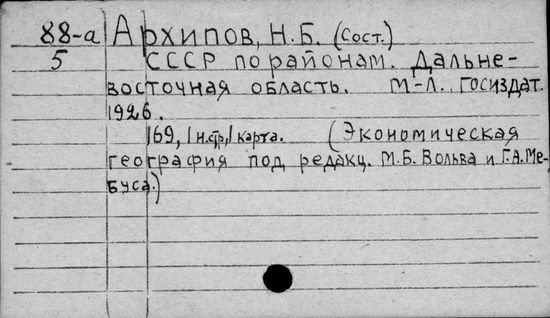 88-а Архипов, Н.Б. (Сост.)
5 СССР по районам. Дальне-
восточная область. М-Л. Госиздат.
1926.
169, 1 н.стр, 1 карта. (Экономическая
география под редакц. М.Б. Вольва и Г.А. Ме-
буса.)